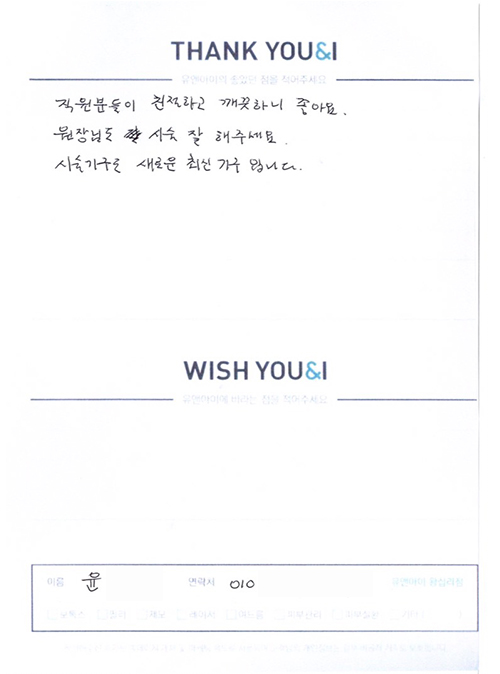 THANK YOU&I
유앤아이의 좋았던 점을 적어주세요
직원분들이 친절하고 깨끗하니 좋아요.
원장님도 시술 잘 해주세요.
시술기구도 새로운 최신 기구 입니다.
WISH YOU&I
유앤아이에 바라는 점을 적어주세요
이름 윤 연락처 010 유앤아이 관심과정
보톡스 필러 제모 레이저 여드름 피부관리 기타 ( )